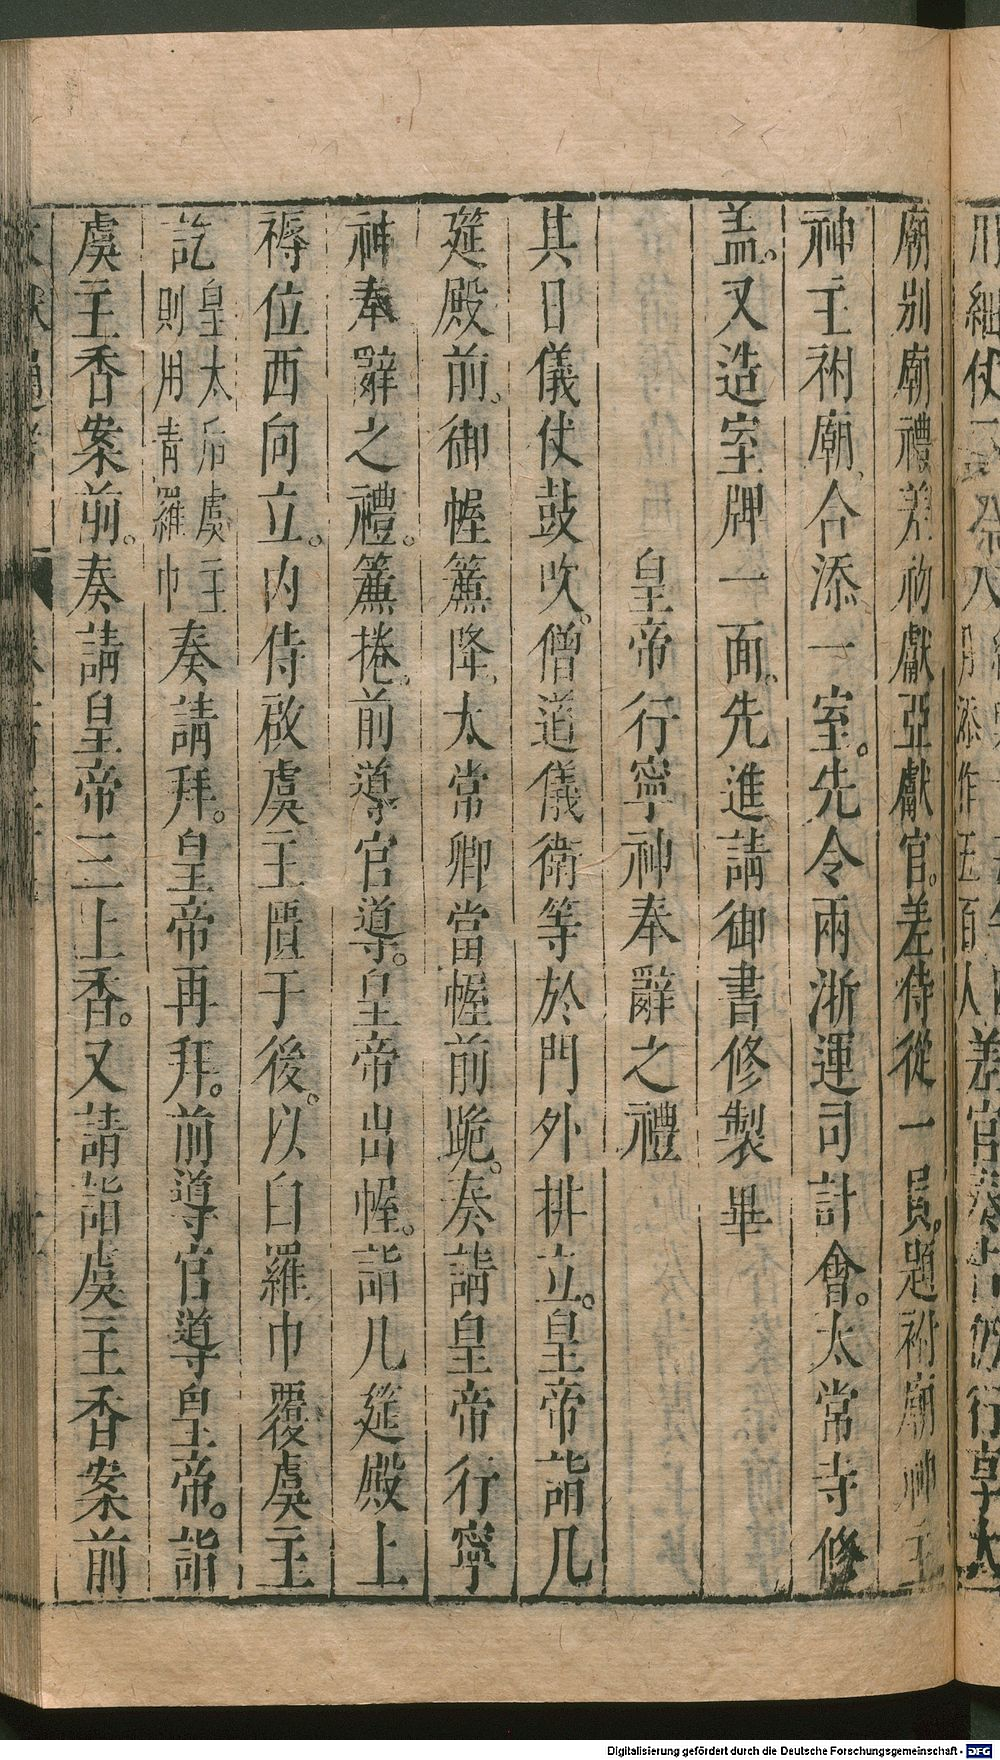 差官奏告仍行享太
廟别廟禮差初獻亞獻官差侍從一員題祔廟神主
神主祔廟合添一室先令兩浙運司計會太常寺修
盖又造室牌一面先進請御書修製畢
皇帝行寧神奉辭之禮
其日儀仗鼓吹僧道儀衛等於門外排立皇帝詣几
筵殿前御幄簾降太常卿當幄前跪奏請皇帝行寧
神奉辭之禮簾捲前導官導皇帝出幄詣几筵殿上
褥位西向立内侍啟虞主匱于後以白羅巾覆虞主
訖皇太后虞主則用青羅巾奏請拜皇帝再拜前導官導皇帝詣
虞主香案前奏請皇帝三上香又請詣虞主香案前
Digitalisierung gefördert durch die Deutsche Forschungsgemeinschaft - DFG